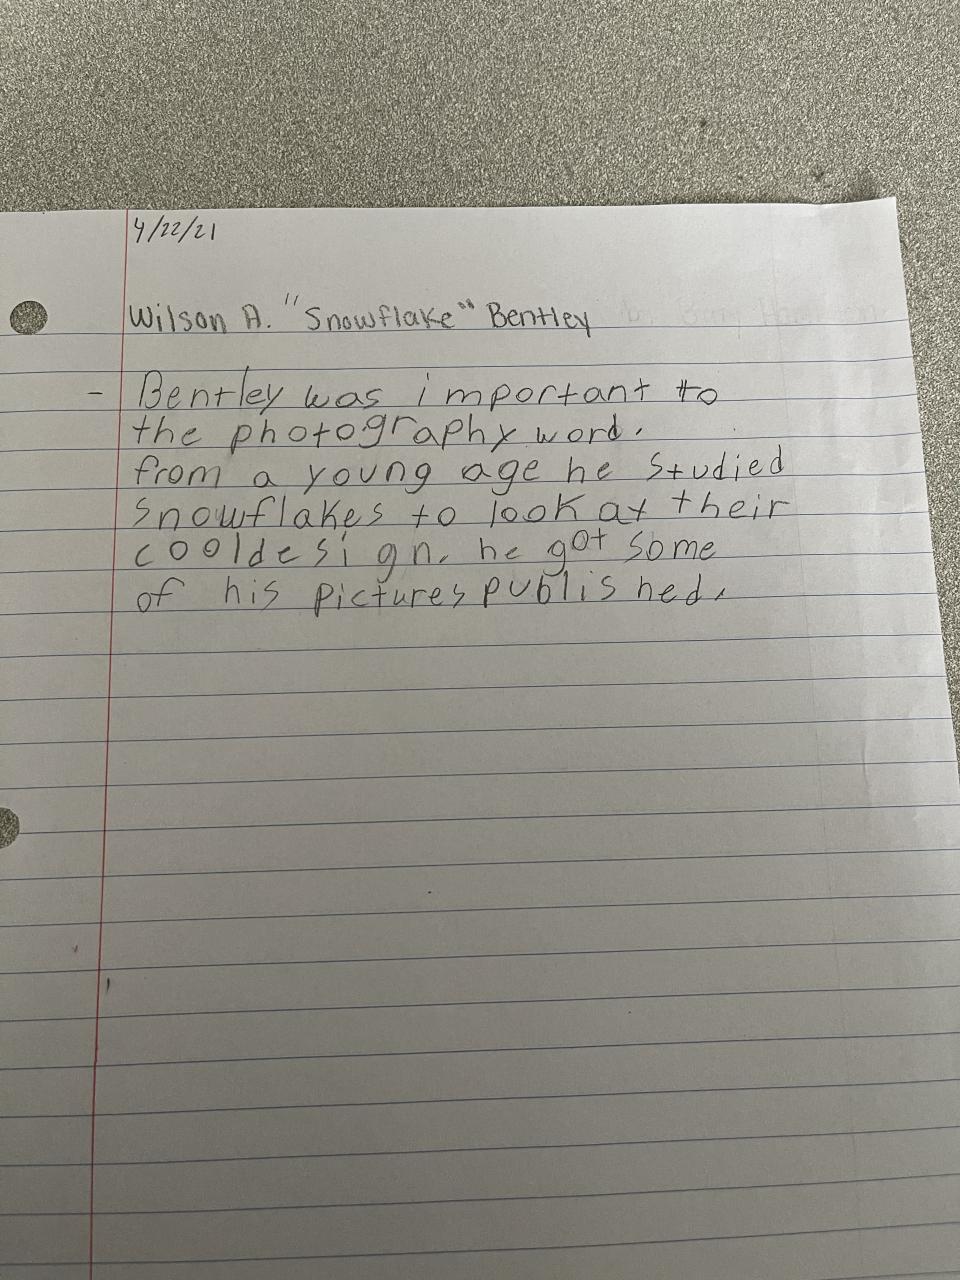 4/22/21
Wilson A. "Snowflake" Bentley
- Bentley was important to
the photography word.
from a young age he studied
snowflakes to look at their
cool design. he got some
of his pictures published.